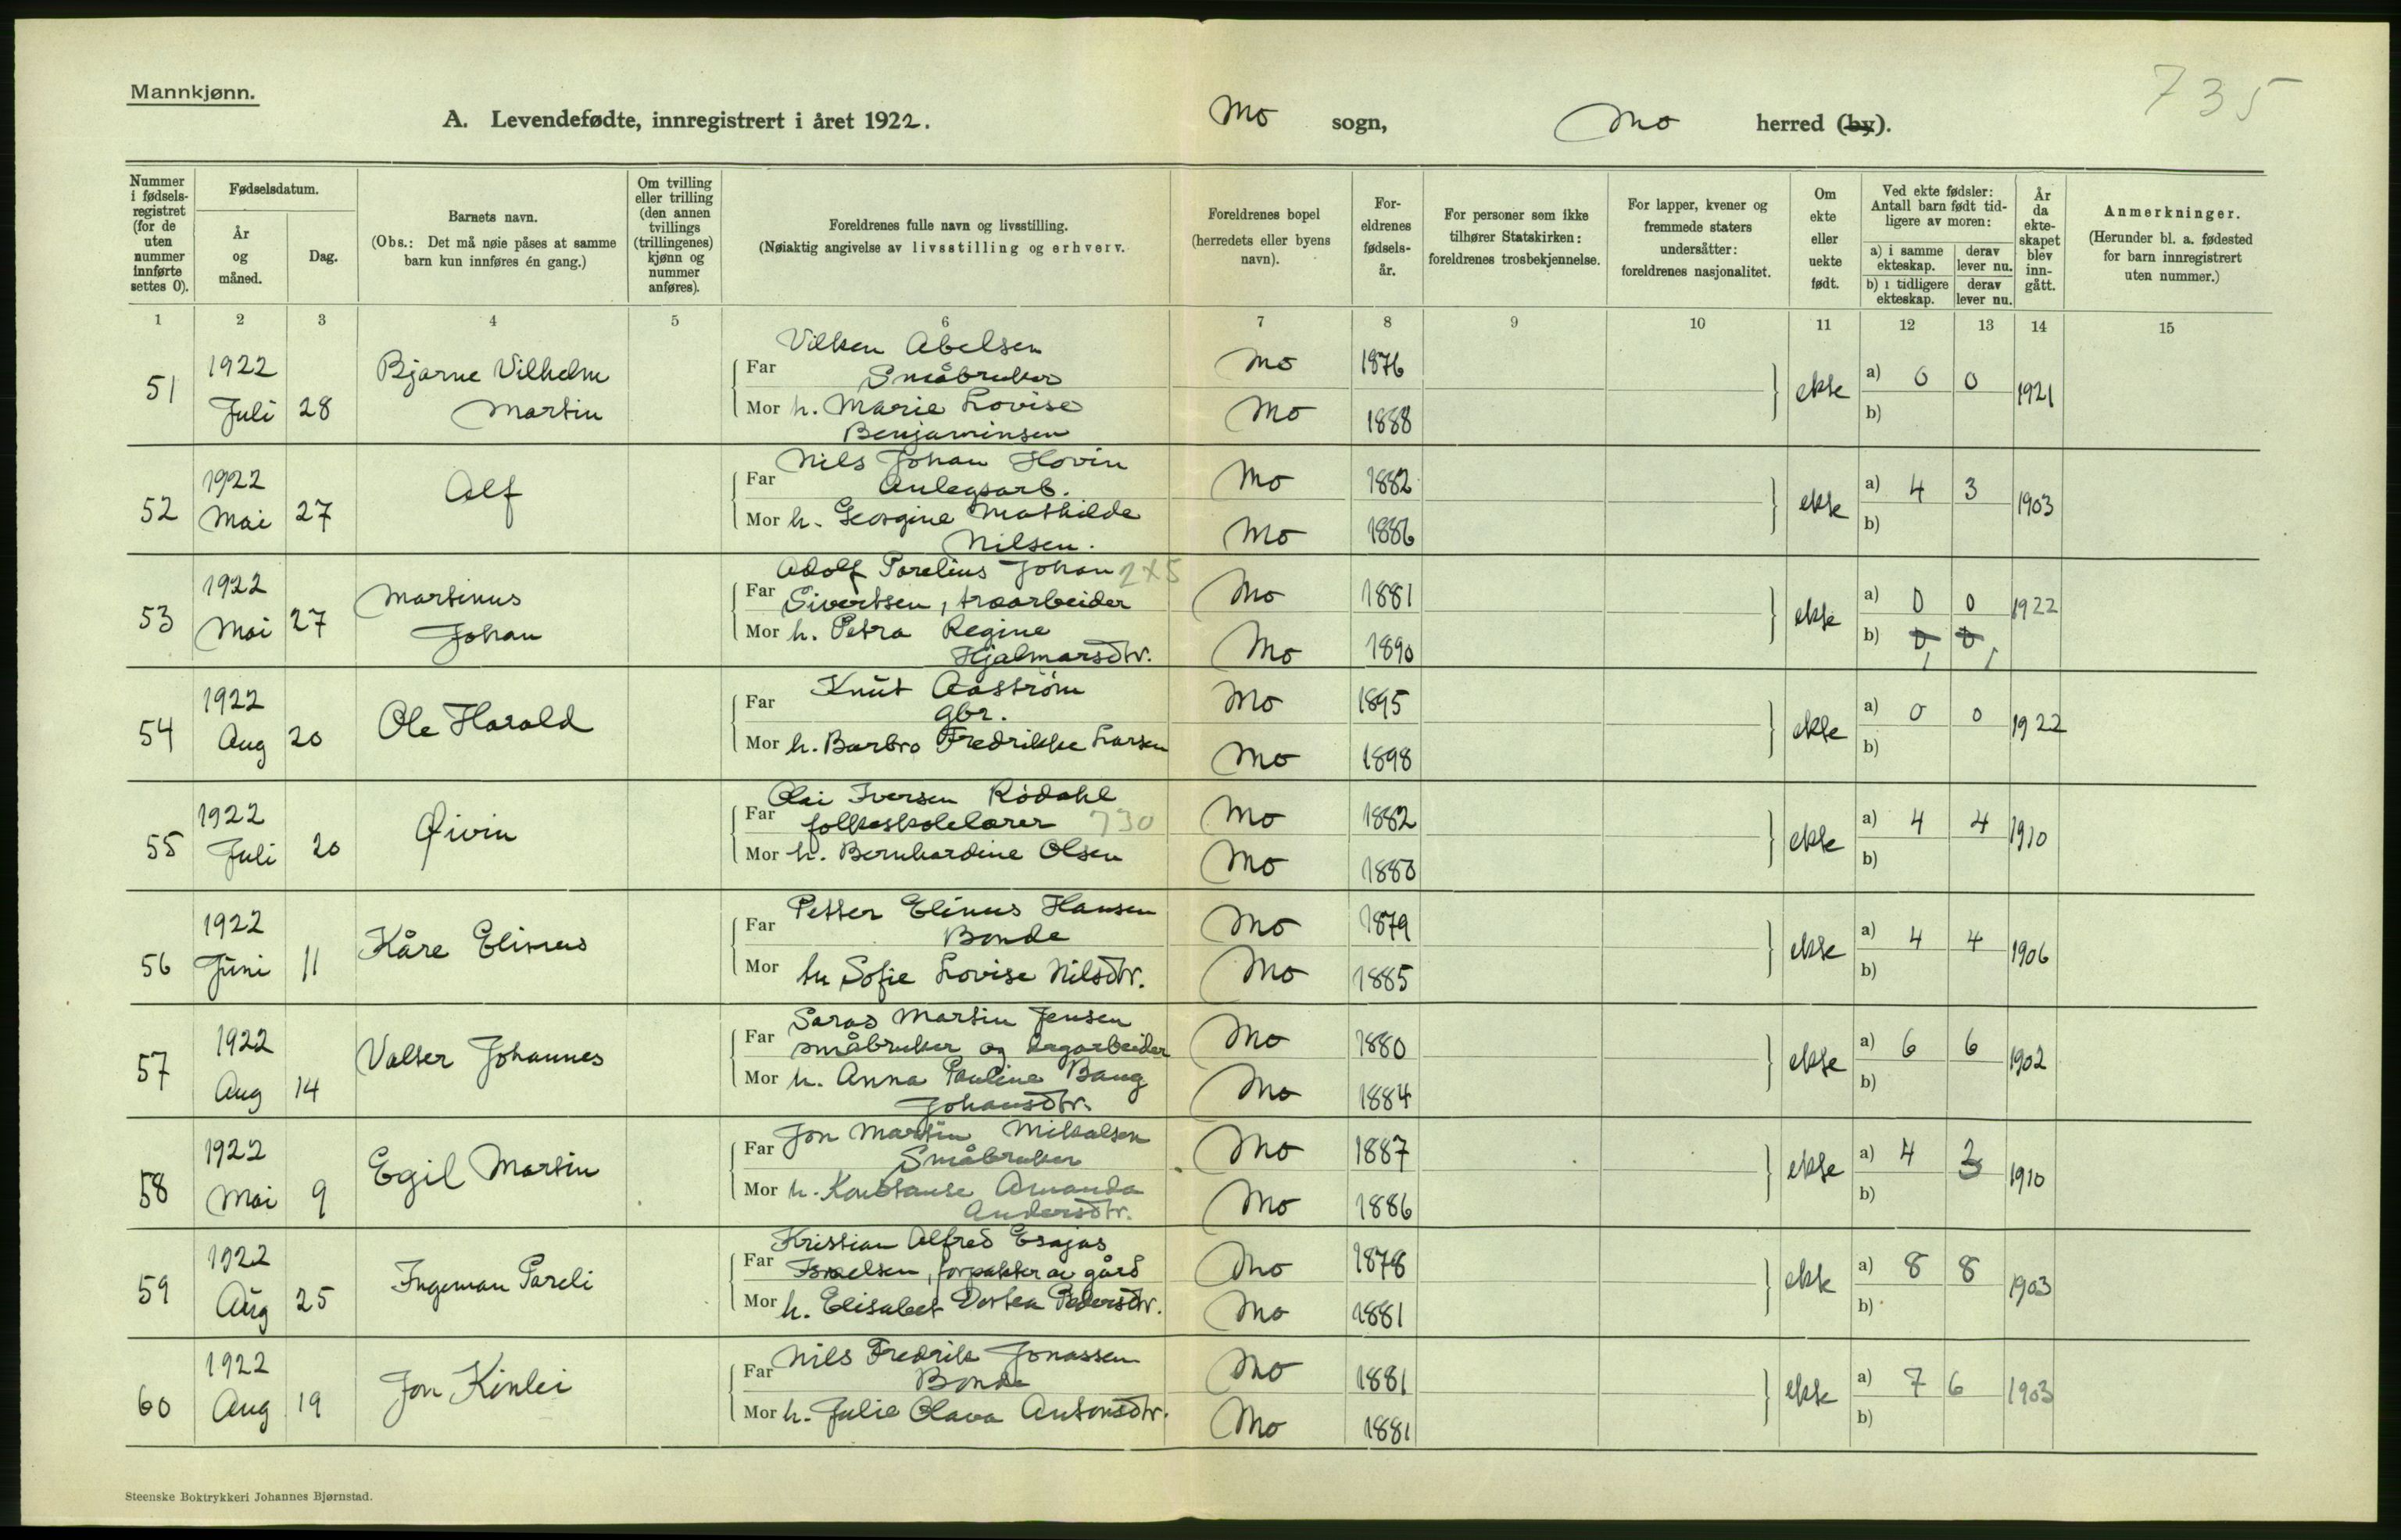 Mannkjønn.
735
A. Levendefødte, innregistrert i året 1922.
Mo sogn, Mo herred (by).
Nummer i fødsels-registret (for de uten nummer innførte settes 0).
Fødselsdatum.
År og måned.
Dag.
Barnets navn.
(Obs.: Det må nøie påses at samme barn kun innføres én gang.)
Om tvilling eller trilling (den annen tvillings (trillingenes) kjønn og nummer anføres).
Foreldrenes fulle navn og livsstilling.
(Nøiaktig angivelse av livsstilling og erhverv.
Foreldrenes bopel (herredets eller byens navn).
For-eldrenes fødsels-år.
For personer som ikke tilhører Statskirken: foreldrenes trosbekjennelse.
For lapper, kvener og fremmede staters undersåtter: foreldrenes nasjonalitet.
Om ekte eller uekte født.
Ved ekte fødsler: Antall barn født tid-ligere av moren:
a) i samme ekteskap. derav lever nu.
b) i tidligere ekteskap. derav lever nu.
År da ekte-skapet blev inn-gått.
Anmerkninger.
(Herunder bl. a. fødested for barn innregistrert uten nummer.)
1 2 3 4 5 6 7 8 9 10 11 12 13 14 15
51 1922 Juli 28 Bjarne Vilhelm Martin
Vilken Abelsen
Far Småbruker Mo 1876
Mor h. Marie Lovise Mo 1888
Benjaminsen
ekte a) 0 0 1921
b)
52 1922 Mai 27 Alf
Nils Johan Hovin
Far Anlegsarb. Mo 1882
Mor h. Georgine Mathilde
Nilsen. Mo 1886
ekte a) 4 3 1903
b)
53 1922 Mai 27 Martinus Johan
Adolf Parelius Johan 2×5
Far Sivertsen, træarbeider Mo 1881
Mor h. Petra Regine
Hjalmarsdtr. Mo 1890
ekte a) 0 0 1922
b) 0 0
1 1
54 1922 Aug 20 Ole Harald
Knut Aaström
Far gbr. Mo 1895
Mor h. Barbro Fredrikke Larsen Mo 1898
ekte a) 0 0 1922
b)
55 1922 Juli 20 Øivin
Olai Iversen Rödahl
Far folkeskolelærer 730 Mo 1882
Mor h. Bernhardine Olsen Mo 1880
ekte a) 4 4 1910
b)
56 1922 Juni 11 Kåre Elinus
Petter Elinus Hansen
Far Bonde Mo 1879
Mor hu Sofie Lovise Nilsdtr. Mo 1885
ekte a) 4 4 1906
b)
57 1922 Aug 14 Valter Johannes
Martin Jensen
Far småbruker og dagarbeider Mo 1880
Mor h. Anna Pauline Baug
Johansdtr. Mo 1884
ekte a) 6 6 1902
b)
58 1922 Mai 9 Egil Martin
Jon Martin Mikalsen
Far Småbruker Mo 1887
Mor h. Konstanse Amanda
Andersdtr. Mo 1886
ekte a) 4 3 1910
b)
59 1922 Aug 25 Ingeman Pareli
Kristian Alfred Esajas
Far Israelsen, forpakter av gård Mo 1878
Mor h. Elisabet Dortea Pedersdtr. Mo 1881
ekte a) 8 8 1903
b)
60 1922 Aug 19 Jon Kinlei
Nils Fredrik Jonassen
Far Bonde Mo 1881
Mor h. Julie Olava Antonsdtr. Mo 1881
ekte a) 7 6 1903
b)
Steenske Boktrykkeri Johannes Bjørnstad.